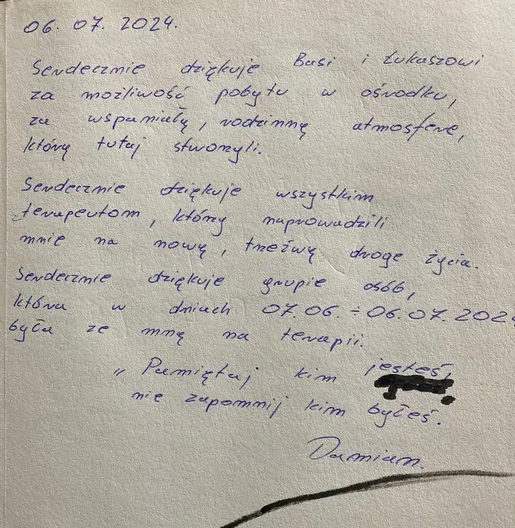 06.07.2024.
Serdecznie dziękuje Basi i Łukaszowi
za możliwość pobytu w ośrodku,
za wspaniałą, rodzinną atmosferę,
którą tutaj stworzyli.
Serdecznie dziękuje wszystkim
terapeutom, którzy naprowadzili
mnie na nową, trzeźwą drogę życia.
Serdecznie dziękuje grupie osób,
która w dniach 07.06. ÷ 06.07.2024
była ze mną na terapii.
„Pamiętaj kim jesteś,
nie zapomnij kim byłeś.
Damian.